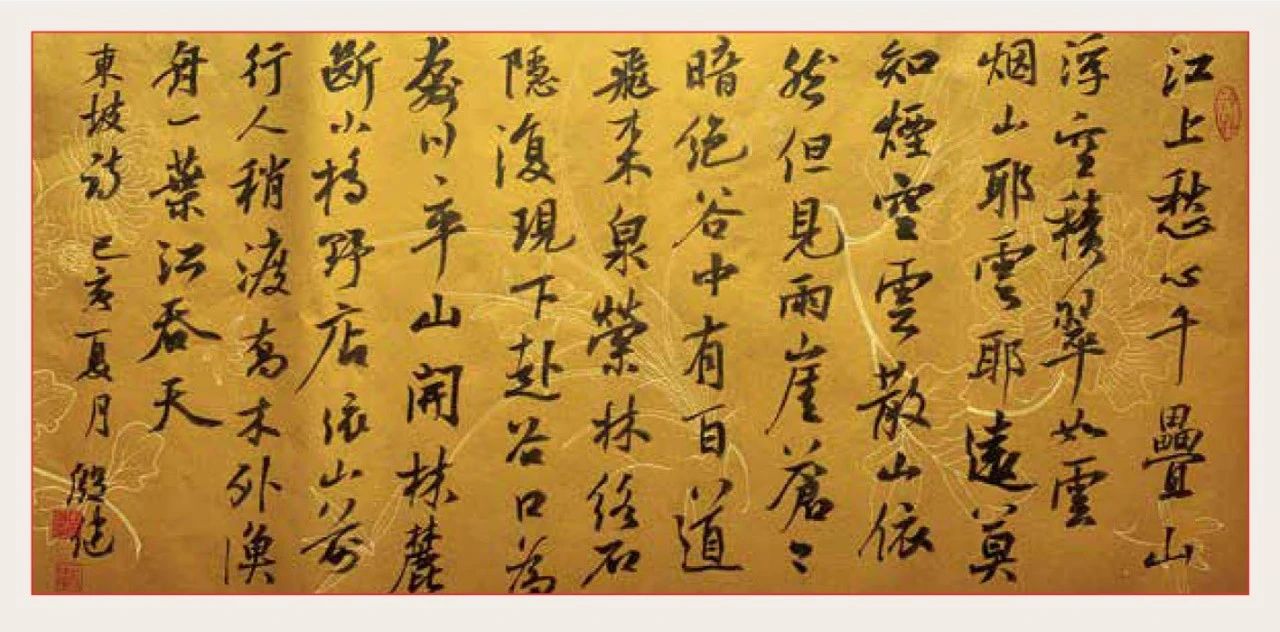 江上愁心千疊山
浮空積翠如雲
烟山耶雲耶遠莫
知煙空雲散山依
然但見兩崖蒼〻
暗絕谷中有百道
飛来泉縈林絡石
隱復現下赴谷口為
奔川〻平山開林麓
斷小橋野店依山前
行人稍渡喬木外漁
舟一葉江吞天
東坡詩 己亥夏月